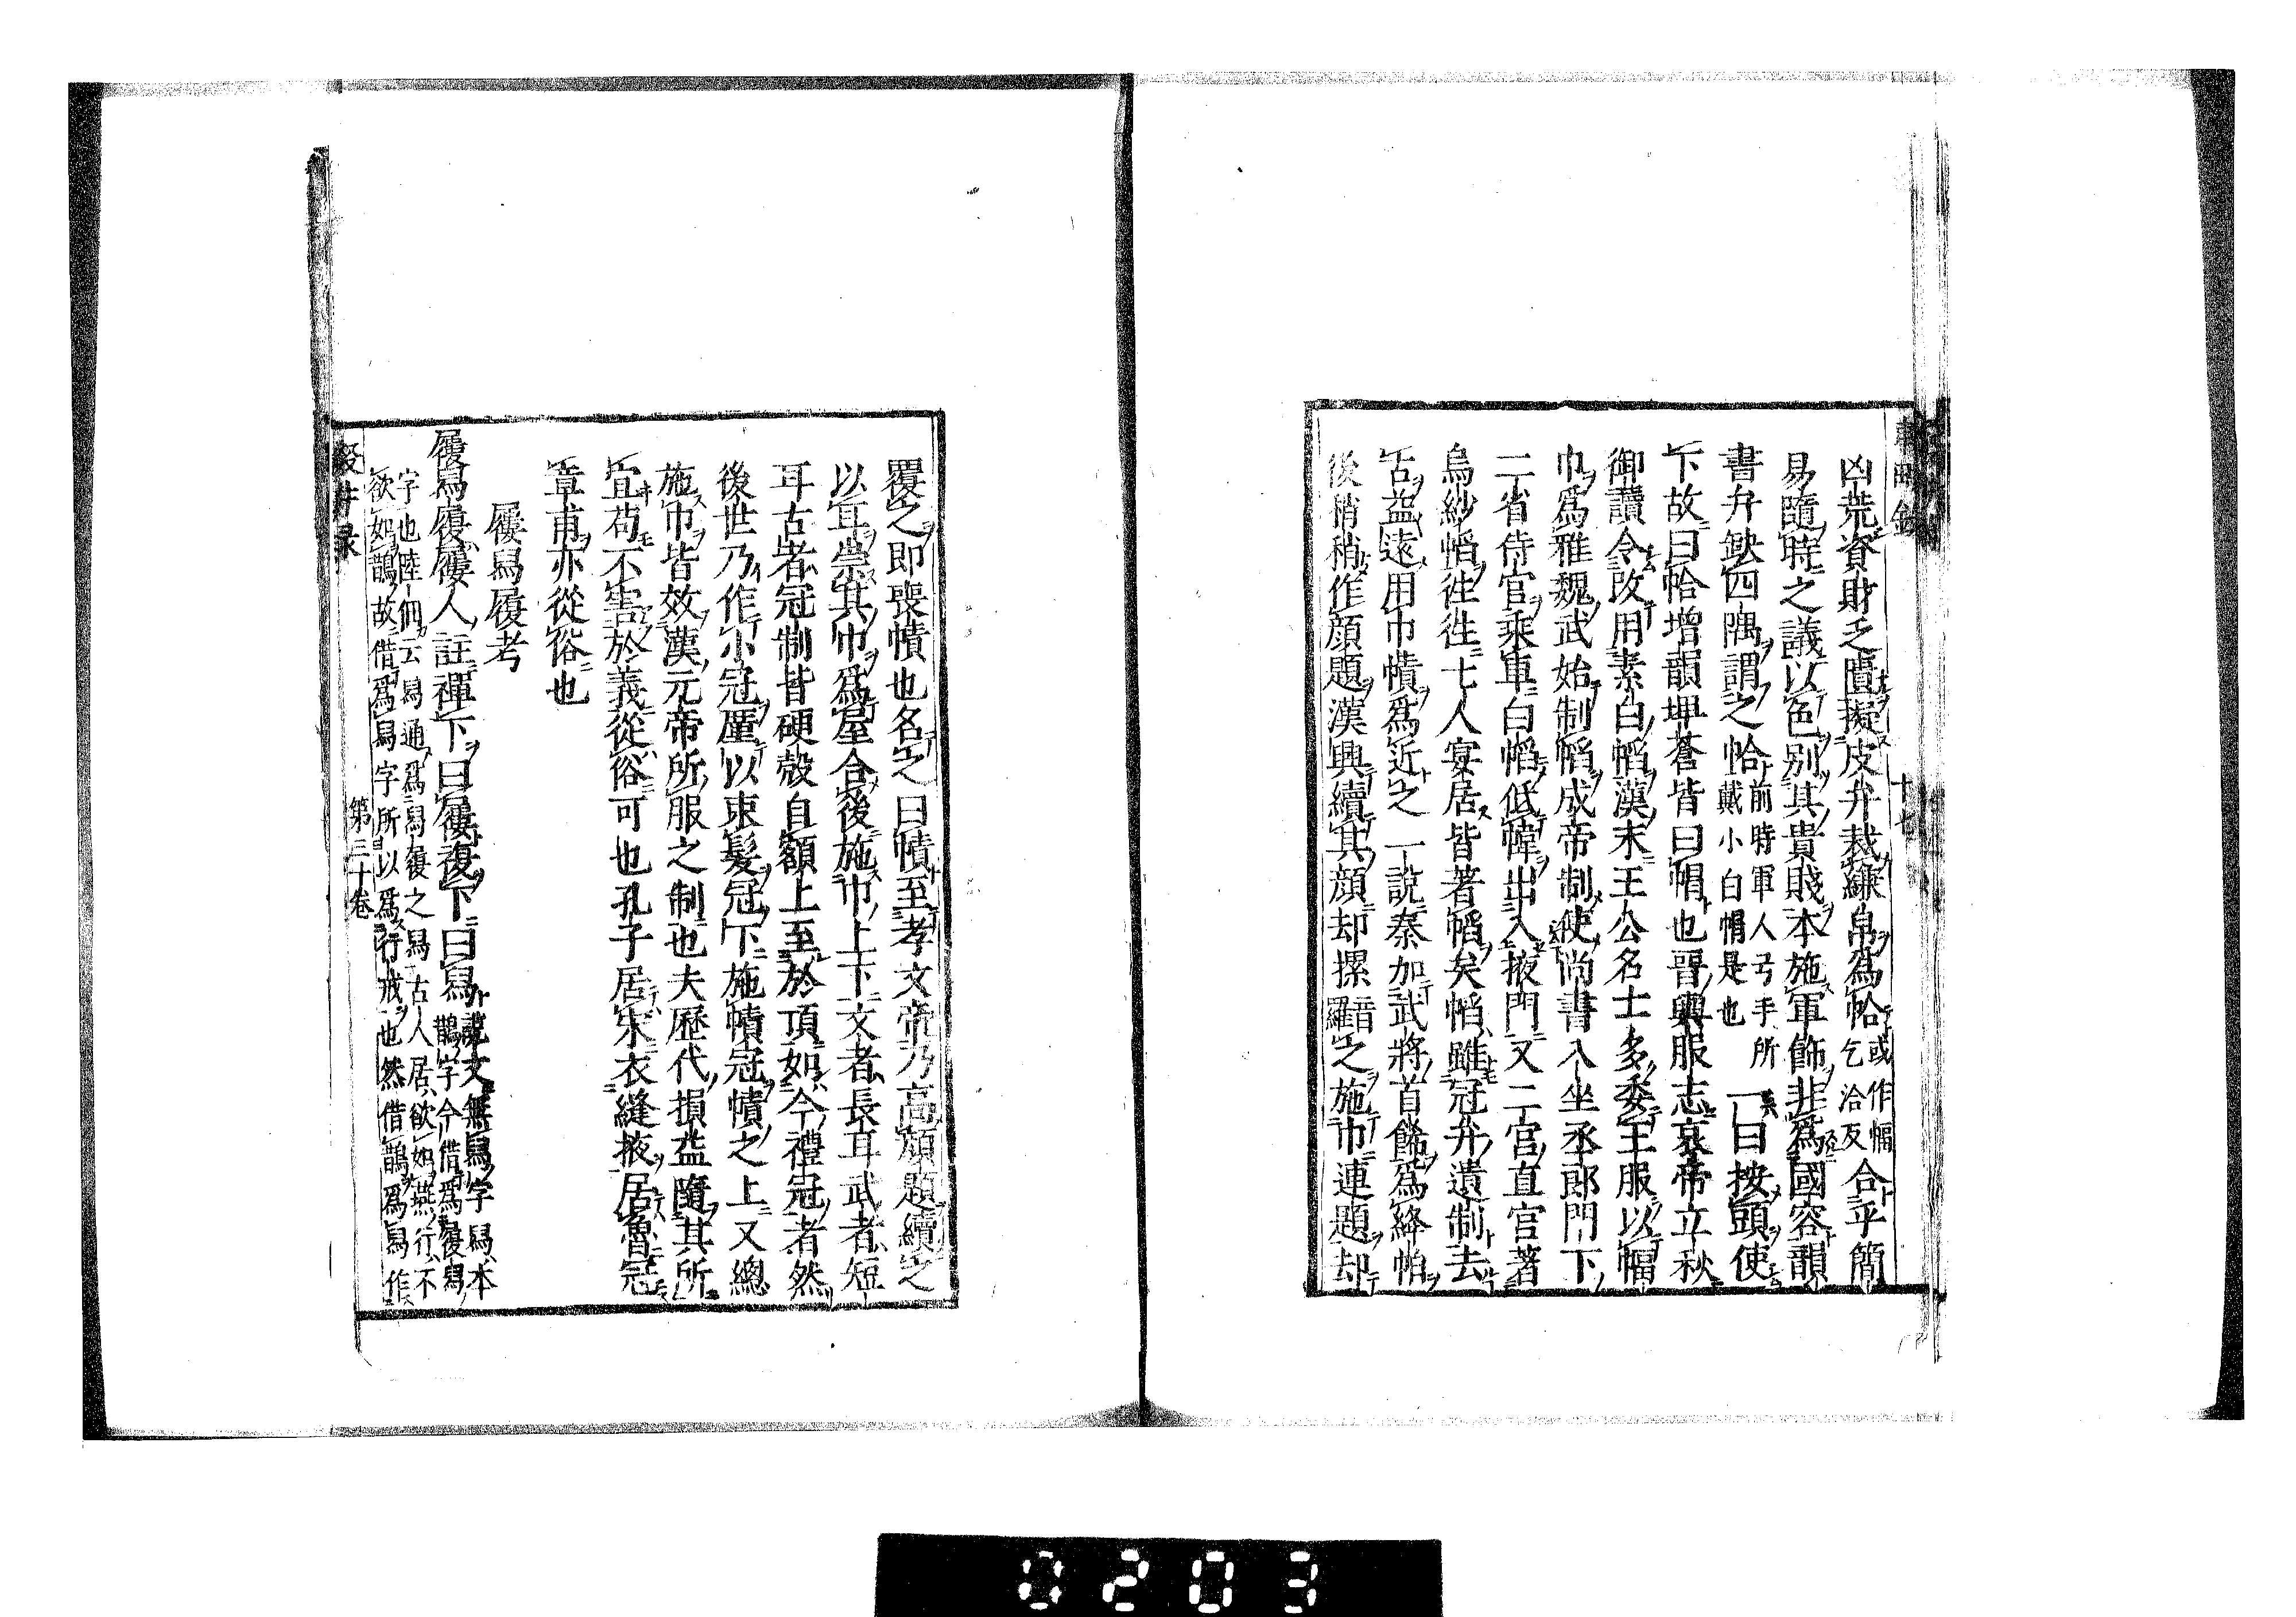 凶荒資財乏匱擬皮弁裁縑帛爲帢或作㡊乞洽反合乎簡
易隨時之議以色別其貴賤本施軍飾非爲國容韻
書弁缺四隅謂之帢前時軍人弓手所戴小白帽是也一曰按頭使
下故曰帢增韻埤蒼皆曰帽也晉輿服志哀帝立秋
御讀令改用素白幍漢末王公名士多委王服以幅
巾爲雅魏武始制幍成帝制使尚書八坐丞郎門下
二省侍官乘車白幍低幃出入掖門又二宮直官著
烏紗幍徃徃士人宴居皆著幍矣幍雖冠弁遺制去
古益遠用巾幘爲近之一說秦加武將首餙爲絳帕
後稍稍作顔題漢興續其顔却摞音羅之施巾連題却
覆之即喪幘也名之曰幘至孝文帝乃高顔題續之
以耳崇其巾爲屋合後施巾上下文者長耳武者短
耳古者冠制皆硬殼自額上至於項如今禮冠者然
後世乃作小冠厪以束髮冠下施幘冠幘之上又總
施巾皆效漢元帝所服之制也夫歷代損益隨其所
宜苟不害於義從俗可也孔子居宋衣縫掖居魯冠
章甫亦從俗也
屨舄履考
履舄屨屨人註禪下曰屨複下曰舄說文無舄字舄本
鵲字今借爲履舄
字也陸佃云舄通爲舄履之舄古人居欲如燕行不
欲如鵲故借爲舄字所以爲行戒也然借鵲爲舄作
第三十卷
十七